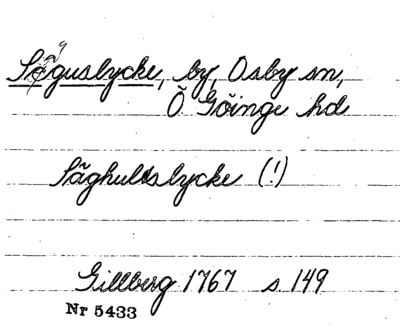 Såguslycke, by, Osby sn,
Ö Göinge hd
Såghultslycke (!)
Gillberg 1767 s 149
Nr 5433